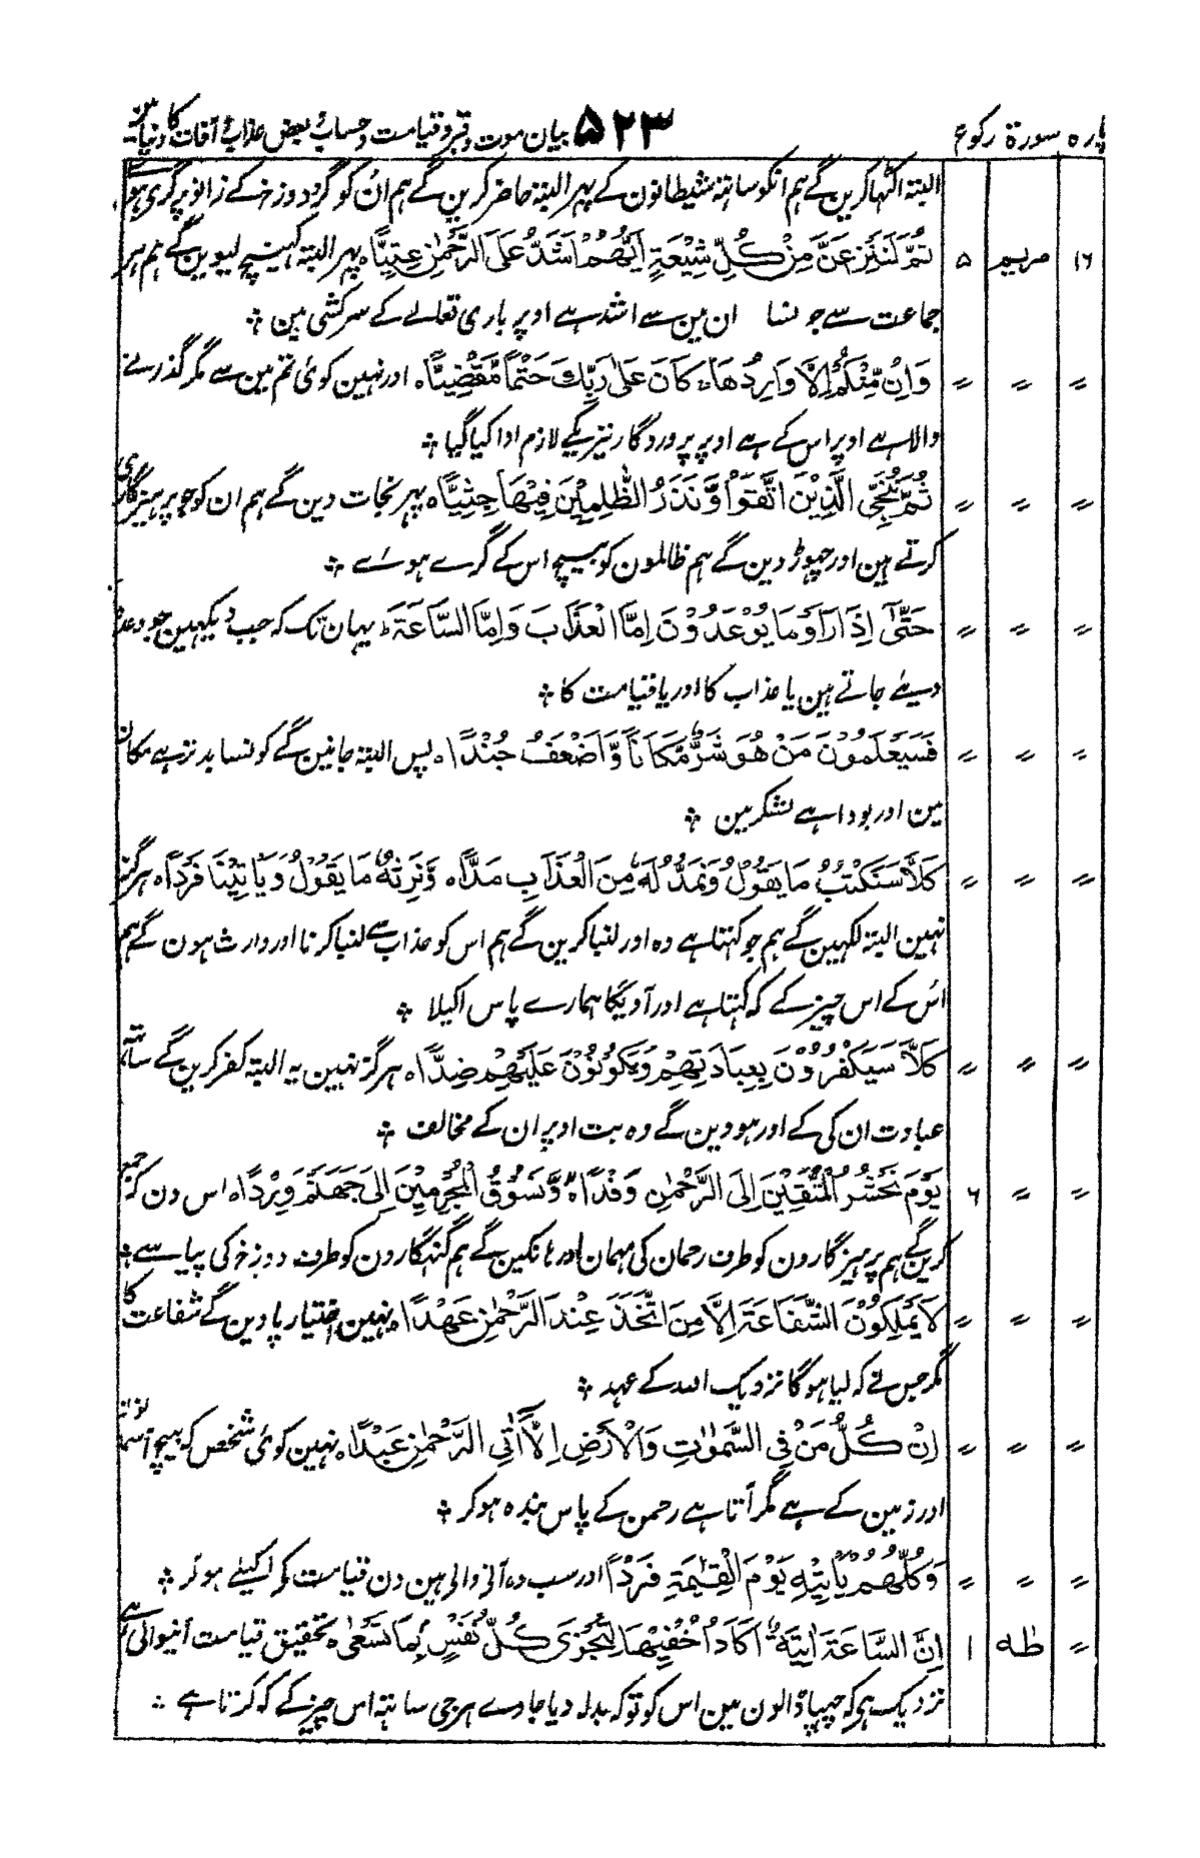 پارہ سورۃ رکوع ۵۲۳ بیان موت و قبر و قیامت و حساب و بعض عذاب و آفات دنیا کا
البتہ اکٹھا کرین گے ہم انکو ساتھ شیطانون کے پہر البتہ حاضر کرین گے ہم اُن کو گرد دوزخ کے زانو پر گری ہوئے
۱۶ مریم ۵ ثُمَّ لَنَنْزِعَنَّ مِنْ كُلِّ شِيْعَةٍ اَيُّهُمْ اَشَدُّ عَلَى الرَّحْمٰنِ عِتِيًّا ہ پہر البتہ کہینچ لیوین گے ہم ہر
جماعت سے جونسا ان مین سے اشد ہے اوپر باری تعالے کے سرکشی مین ؞
〃 〃 〃 وَاِنْ مِّنْكُمْ اِلَّا وَارِدُهَا ۚ كَانَ عَلٰى رَبِّكَ حَتْمًا مَّقْضِيًّا ہ اور نہین کوئی تم مین سے مگر گذرنے
والا ہے اوپر اس کے ہے اوپر پروردگار تیرے کے لازم ادا کیا گیا ؞
〃 〃 〃 ثُمَّ نُنَجِّى الَّذِيْنَ اتَّقَوْا وَّنَذَرُ الظّٰلِمِيْنَ فِيْهَا جِثِيًّا ہ پہر نجات دین گے ہم ان کو جو پرہیزگاری
کرتے ہین اور چہوڑ دین گے ہم ظالمون کو بیچ اس کے گرے ہوئے ؞
〃 〃 〃 حَتّٰى اِذَا رَاَوْ مَا يُوْعَدُوْنَ اِمَّا الْعَذَابَ وَاِمَّا السَّاعَةَ ط یہان تک کہ جب دیکہین جو وعدہ
دیئے جاتے ہین یا عذاب کا اور یا قیامت کا ؞
〃 〃 〃 فَسَيَعْلَمُوْنَ مَنْ هُوَ شَرٌّ مَّكَانًا وَّاَضْعَفُ جُنْدًا ہ پس البتہ جانین گے کونسا بدتر ہے مکان
مین اور بودا ہے لشکر مین ؞
〃 〃 〃 كَلَّا سَنَكْتُبُ مَا يَقُوْلُ وَنَمُدُّ لَهٗ مِنَ الْعَذَابِ مَدًّا ہ وَّنَرِثُهٗ مَا يَقُوْلُ وَيَاْتِيْنَا فَرْدًا ہ ہرگز
نہین البتہ لکہین گے ہم جو کہتا ہے وہ اور لنبا کرین گے ہم اس کو عذاب سے لنبا کرنا اور وارث ہون گے ہم
اُس کے اس چیز کے کہ کہتا ہے اور آویگا ہمارے پاس اکیلا ؞
〃 〃 〃 كَلَّا سَيَكْفُرُوْنَ بِعِبَادَتِهِمْ وَيَكُوْنُوْنَ عَلَيْهِمْ ضِدًّا ہ ہرگز نہین یہ البتہ کفر کرین گے ساتہہ
عبادت ان کی کے اور ہووین گے وہ بت اوپر ان کے مخالف ؞
〃 〃 ۶ يَوْمَ نَحْشُرُ الْمُتَّقِيْنَ اِلَى الرَّحْمٰنِ وَفْدًا ہ وَّنَسُوْقُ الْمُجْرِمِيْنَ اِلٰى جَهَنَّمَ وِرْدًا ہ اس دن کہ جمع
کرین گے ہم پرہیزگارون کو طرف رحمان کی مہمان اور ہانکین گے ہم گنہگارون کو طرف دوزخ کی پیاسے ؞
〃 〃 〃 لَا يَمْلِكُوْنَ الشَّفَاعَةَ اِلَّا مَنِ اتَّخَذَ عِنْدَ الرَّحْمٰنِ عَهْدًا ہ نہین اختیار پاوین گے شفاعت کا
مگر جس نے کہ لیا ہوگا نزدیک اللہ کے عہد ؞
〃 〃 〃 اِنْ كُلُّ مَنْ فِى السَّمٰوٰتِ وَالْاَرْضِ اِلَّا اٰتِى الرَّحْمٰنِ عَبْدًا ہ نہین کوئی شخص کہ بیچ آسمانون
اور زمین کے ہے مگر آتا ہے رحمن کے پاس بندہ ہو کر ؞
〃 〃 〃 وَكُلُّهُمْ اٰتِيْهِ يَوْمَ الْقِيٰمَةِ فَرْدًا اور سب وہ آنی والی ہین دن قیامت کو اکیلے ہو کر ؞
〃 طٰہ ۱ اِنَّ السَّاعَةَ اٰتِيَةٌ اَكَادُ اُخْفِيْهَا لِتُجْزٰى كُلُّ نَفْسٍ بِمَا تَسْعٰى ہ تحقیق قیامت آنیوالی ہے
نزدیک ہے کہ چہپا ڈالون مین اس کو تو کہ بدلہ دیا جاوے ہر جی ساتہہ اس چیز کے کہ کرتا ہے ؞